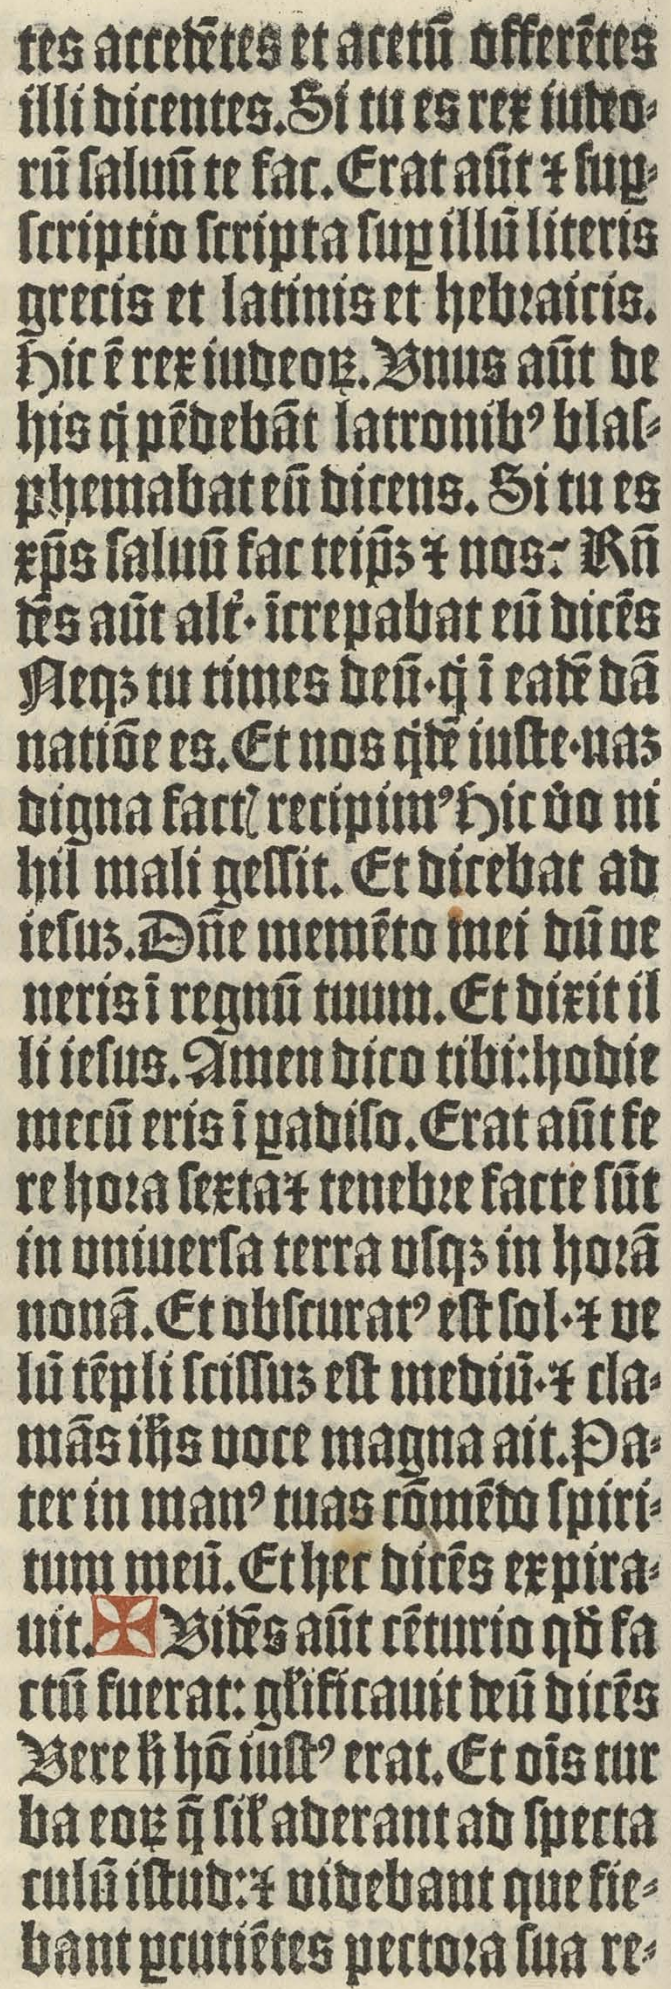 tes accedētes et acetū offerētes
illi dicentes. Si tu es rex iudeo⸗
rū ſaluū te fac. Erat aūt ⁊ ſuꝑ⸗
ſcriptio ſcripta ſuꝑ illū literis
grecis et latinis et hebꝛaicis.
Hic ē rex iudeoꝝ. Vnus aūt de
his q̇ pēdebāt latronibꝰ blaſ⸗
phemabat eū dicens. Si tu es
xp̄s ſaluū fac teip̄ꝫ ⁊ nos: Rn̄
dēs aūt alt̉· īcrepabat eū dicēs
Neqꝫ tu times deū·q̇ ī eadē dā
natiōe es. Et nos q̇dē iuſte·naꝫ
digna factꝭ recipimꝰ Hic v̉o ni
hil mali geſſit. Et dicebat ad
ieſuꝫ. Dn̄e memēto mei dū ve
neris ī regnū tuum. Et dixit il
li ieſus. Amen dico tibi: hodie
mecū eris ī ꝑadiſo. Erat aūt fe
re hoꝛa ſexta ⁊ tenebꝛe facte ſūt
in vniuerſa terra vſqꝫ in hoꝛā
nonā. Et obſcuratꝰ eſt ſol·⁊ ve
lū tēpli ſciſſuꝫ eſt mediū·⁊ cla⸗
mās ih̄s voce magna ait. Pa⸗
ter in manꝰ tuas cōmēdo ſpiri⸗
tum meū. Et hec dicēs expira⸗
uit. Vidēs aūt cēturio qđ fa
ctū fuerat: gl̉ificauit deū dicēs
Vere h̄ hō iuſtꝰ erat. Et oīs tur
ba eoꝝ q̄ ſil̉ aderant ad ſpecta
culū iſtud: ⁊ videbant que fie⸗
bant ꝑcutiētes pectoꝛa ſua re⸗